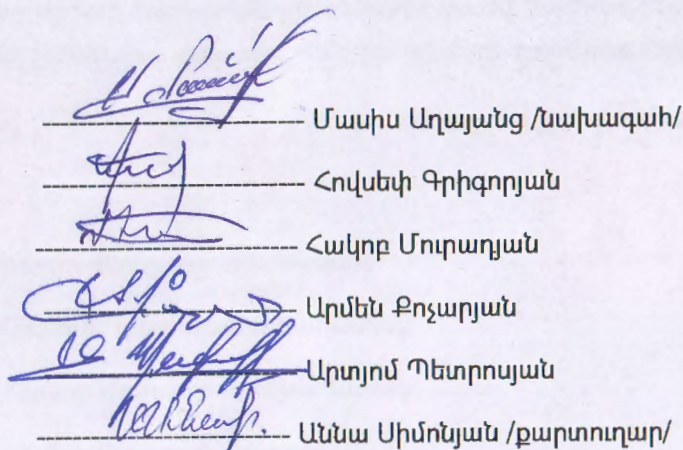 Մասիս Աղայանց /նախագահ/
Հովսեփ Գրիգորյան
Հակոբ Մուրադյան
Արմեն Քոչարյան
Արտյոմ Պետրոսյան
Աննա Սիմոնյան /քարտուղար/